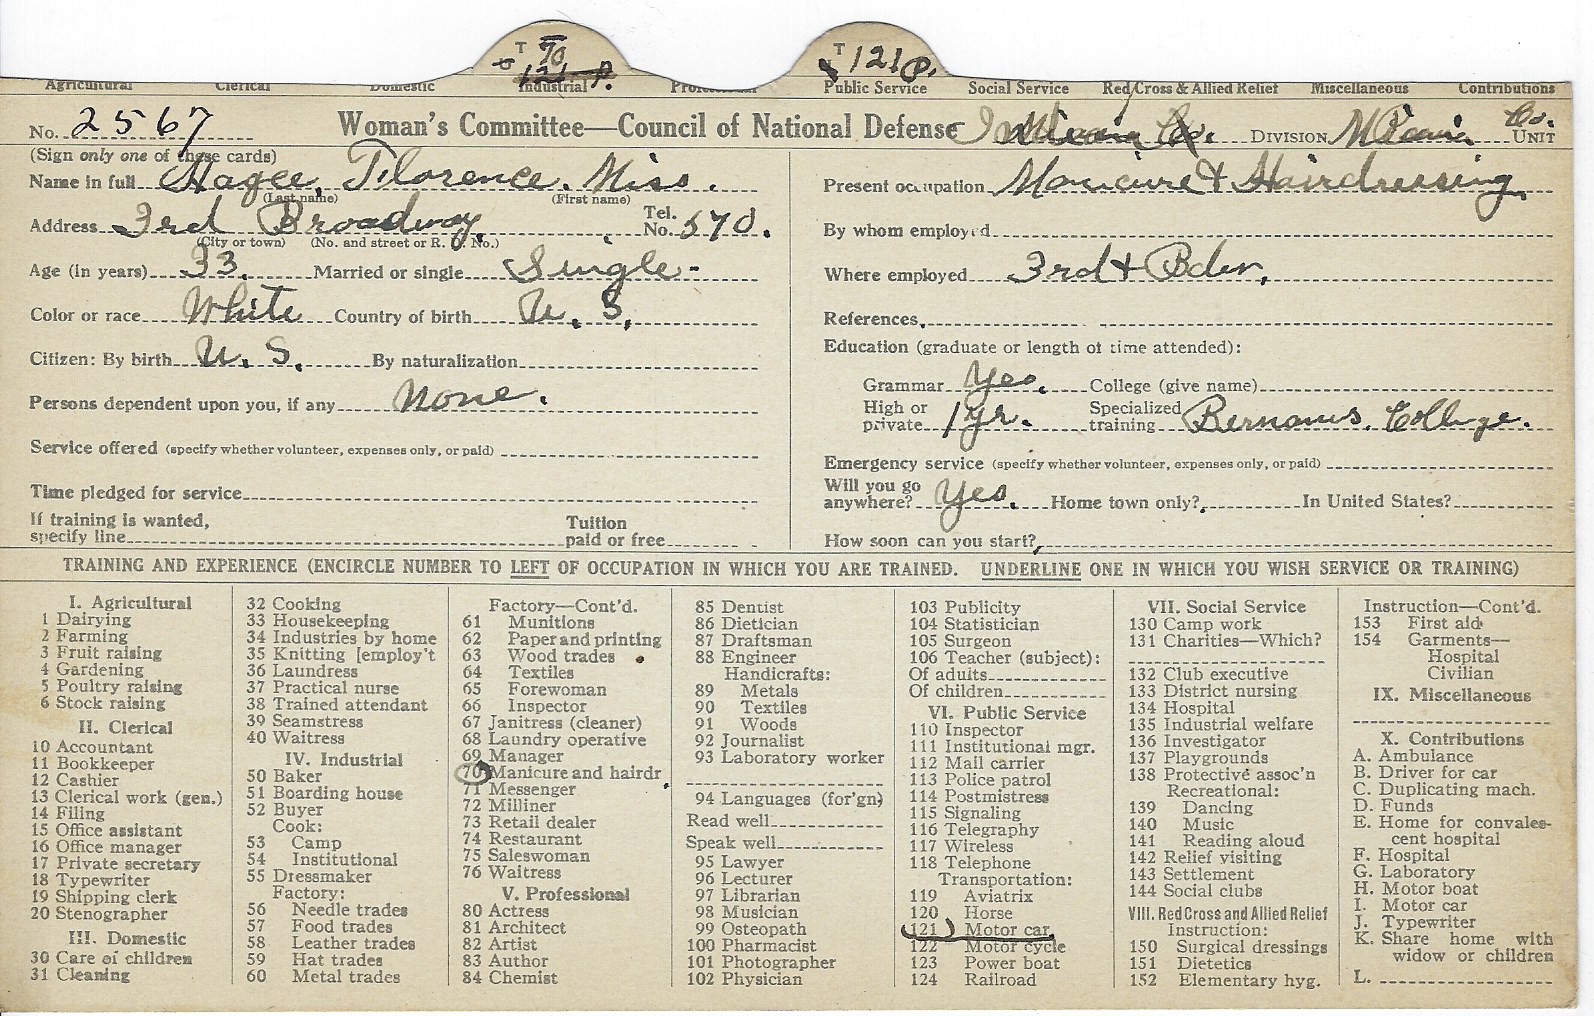 T 70
121 P.
T 121 P.
Agricultural Clerical Domestic Industrial Professional Public Service Social Service Red Cross & Allied Relief Miscellaneous Contributions
No. 2567 Woman's Committee—Council of National Defense DIVISION Co. UNIT
(Sign only one of these cards)
Name in full Hagee, Florence. Miss.
(Last name) (First name)
Address 3rd Broadway. Tel. No. 570.
(City or town) (No. and street or R. F. D. No.)
Age (in years) 33. Married or single Single-
Color or race White Country of birth U. S.
Citizen: By birth U. S. By naturalization
Persons dependent upon you, if any None.
Service offered (specify whether volunteer, expenses only, or paid)
Time pledged for service
If training is wanted, specify line Tuition paid or free
Present occupation Manicure & Hairdressing
By whom employed
Where employed 3rd & Bdw.
References,
Education (graduate or length of time attended):
Grammar Yes. College (give name)
High or private 1 yr. Specialized training College.
Emergency service (specify whether volunteer, expenses only, or paid)
Will you go anywhere? Yes. Home town only? In United States?
How soon can you start?
TRAINING AND EXPERIENCE (ENCIRCLE NUMBER TO LEFT OF OCCUPATION IN WHICH YOU ARE TRAINED. UNDERLINE ONE IN WHICH YOU WISH SERVICE OR TRAINING)
I. Agricultural
1 Dairying
2 Farming
3 Fruit raising
4 Gardening
5 Poultry raising
6 Stock raising
II. Clerical
10 Accountant
11 Bookkeeper
12 Cashier
13 Clerical work (gen.)
14 Filing
15 Office assistant
16 Office manager
17 Private secretary
18 Typewriter
19 Shipping clerk
20 Stenographer
III. Domestic
30 Care of children
31 Cleaning
32 Cooking
33 Housekeeping
34 Industries by home
35 Knitting [employ't
36 Laundress
37 Practical nurse
38 Trained attendant
39 Seamstress
40 Waitress
IV. Industrial
50 Baker
51 Boarding house
52 Buyer
Cook:
53 Camp
54 Institutional
55 Dressmaker
Factory:
56 Needle trades
57 Food trades
58 Leather trades
59 Hat trades
60 Metal trades
Factory—Cont'd.
61 Munitions
62 Paper and printing
63 Wood trades
64 Textiles
65 Forewoman
66 Inspector
67 Janitress (cleaner)
68 Laundry operative
69 Manager
70 Manicure and hairdr
71 Messenger
72 Milliner
73 Retail dealer
74 Restaurant
75 Saleswoman
76 Waitress
V. Professional
80 Actress
81 Architect
82 Artist
83 Author
84 Chemist
85 Dentist
86 Dietician
87 Draftsman
88 Engineer
Handicrafts:
89 Metals
90 Textiles
91 Woods
92 Journalist
93 Laboratory worker
94 Languages (for'gn)
Read well
Speak well
95 Lawyer
96 Lecturer
97 Librarian
98 Musician
99 Osteopath
100 Pharmacist
101 Photographer
102 Physician
103 Publicity
104 Statistician
105 Surgeon
106 Teacher (subject):
Of adults
Of children
VI. Public Service
110 Inspector
111 Institutional mgr.
112 Mail carrier
113 Police patrol
114 Postmistress
115 Signaling
116 Telegraphy
117 Wireless
118 Telephone
Transportation:
119 Aviatrix
120 Horse
121 Motor car
122 Motor cycle
123 Power boat
124 Railroad
VII. Social Service
130 Camp work
131 Charities—Which?
132 Club executive
133 District nursing
134 Hospital
135 Industrial welfare
136 Investigator
137 Playgrounds
138 Protective assoc'n
Recreational:
139 Dancing
140 Music
141 Reading aloud
142 Relief visiting
143 Settlement
144 Social clubs
VIII. Red Cross and Allied Relief
Instruction:
150 Surgical dressings
151 Dietetics
152 Elementary hyg.
Instruction—Cont'd.
153 First aid
154 Garments—
Hospital
Civilian
IX. Miscellaneous
X. Contributions
A. Ambulance
B. Driver for car
C. Duplicating mach.
D. Funds
E. Home for convales-
cent hospital
F. Hospital
G. Laboratory
H. Motor boat
I. Motor car
J. Typewriter
K. Share home with
widow or children
L.